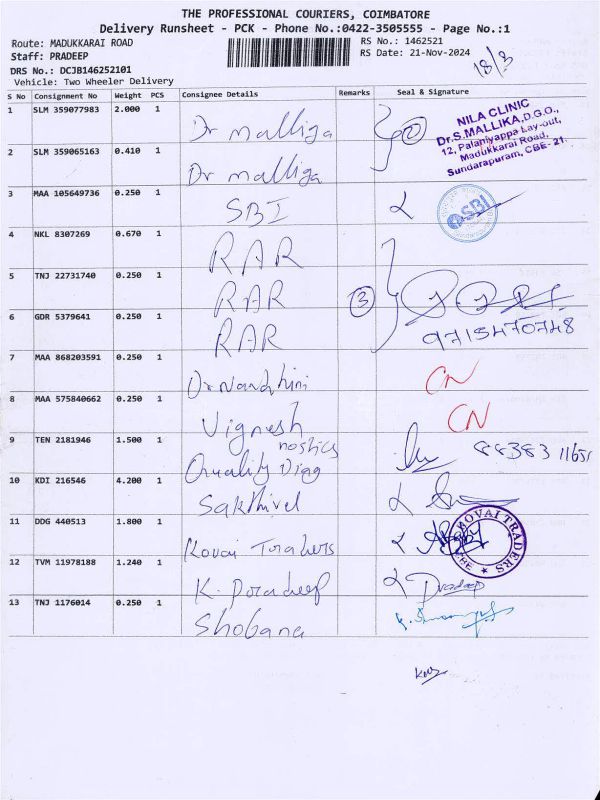 THE PROFESSIONAL COURIERS, COIMBATORE
Delivery Runsheet - PCK - Phone No.:0422-3505555 - Page No.:1
Route: MADUKKARAI ROAD
RS No.: 1462521
Staff: PRADEEP
RS Date: 21-Nov-2024
18/3
DRS No.: DCJB146252101
Vehicle: Two Wheeler Delivery
S No Consignment No Weight PCS Consignee Details Remarks Seal & Signature
1 SLM 359077983 2.000 1 Dr malliga
2
NILA CLINIC
Dr.S.MALLIKA,D.G.O.,
12, Palaniyappa Lay-out,
Madukkarai Road,
Sundarapuram, CBE- 21
2 SLM 359065163 0.410 1 Dr malliga
3 MAA 105649736 0.250 1 SBI
SBI
4 NKL 8307269 0.670 1 RAR
5 TNJ 22731740 0.250 1 RAR 3
6 GDR 5379641 0.250 1 RAR
9715470748
7 MAA 868203591 0.250 1 Dr Nandhini CN
8 MAA 575840662 0.250 1 Vignesh CN
9 TEN 2181946 1.500 1 Quality Diagnostics
10 KDI 216546 4.200 1 Sakthivel
11 DDG 440513 1.800 1 Kovai Traders
KOVAI TRADERS
12 TVM 11978188 1.240 1 K. Pradeep Pradeep
13 TNJ 1176014 0.250 1 Shobana